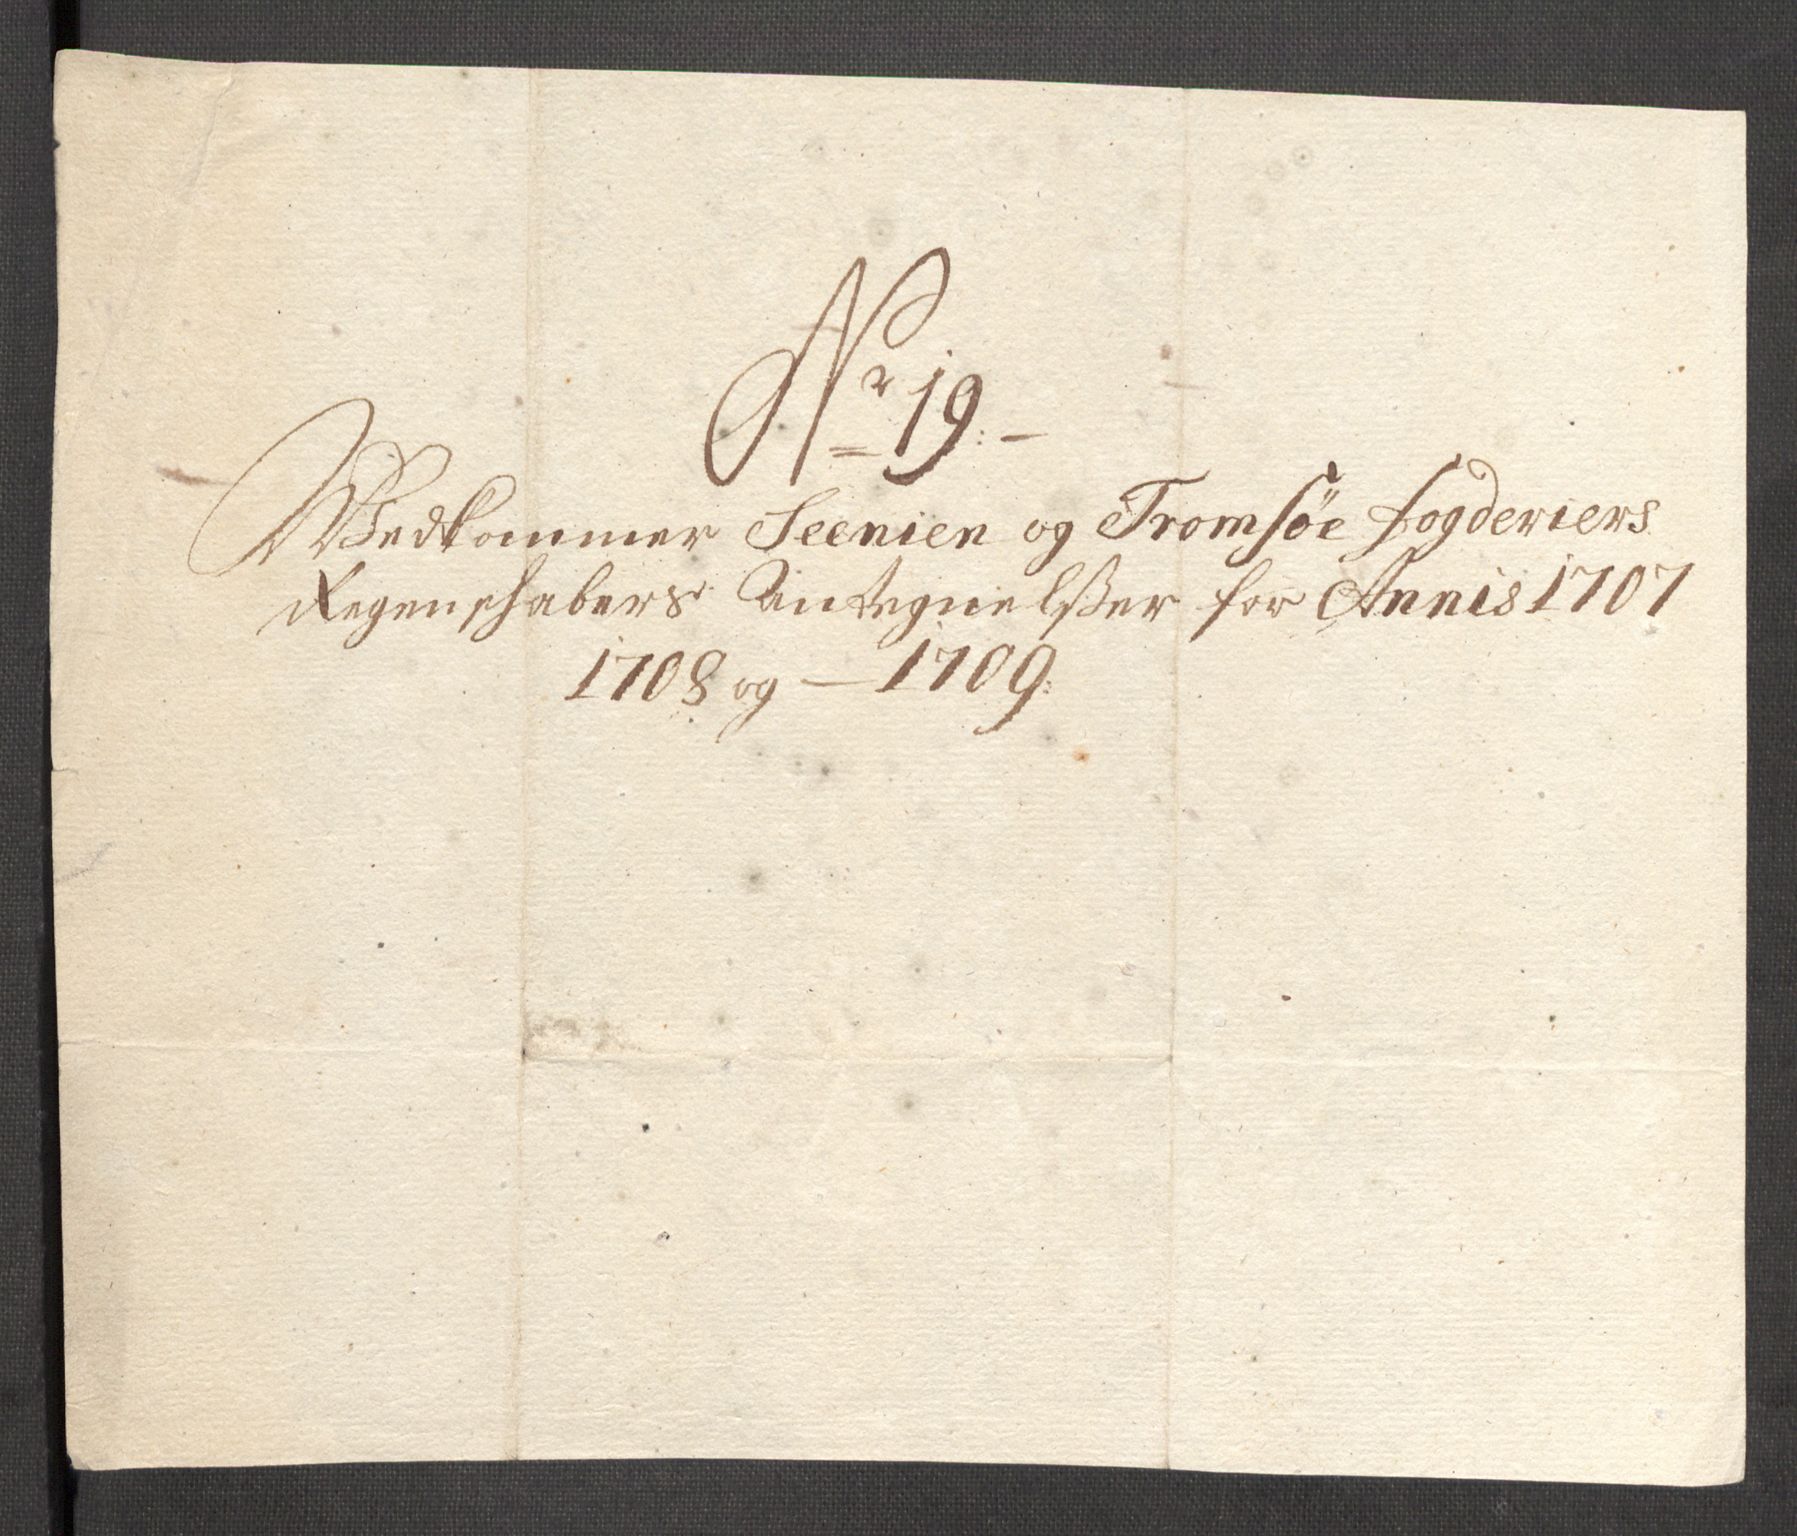 Nr 19:
Vedkommer Seenien og Tromsøe fogderiers
Regenschabers Antegnelsser for Annis 1707
1708 og — 1709: